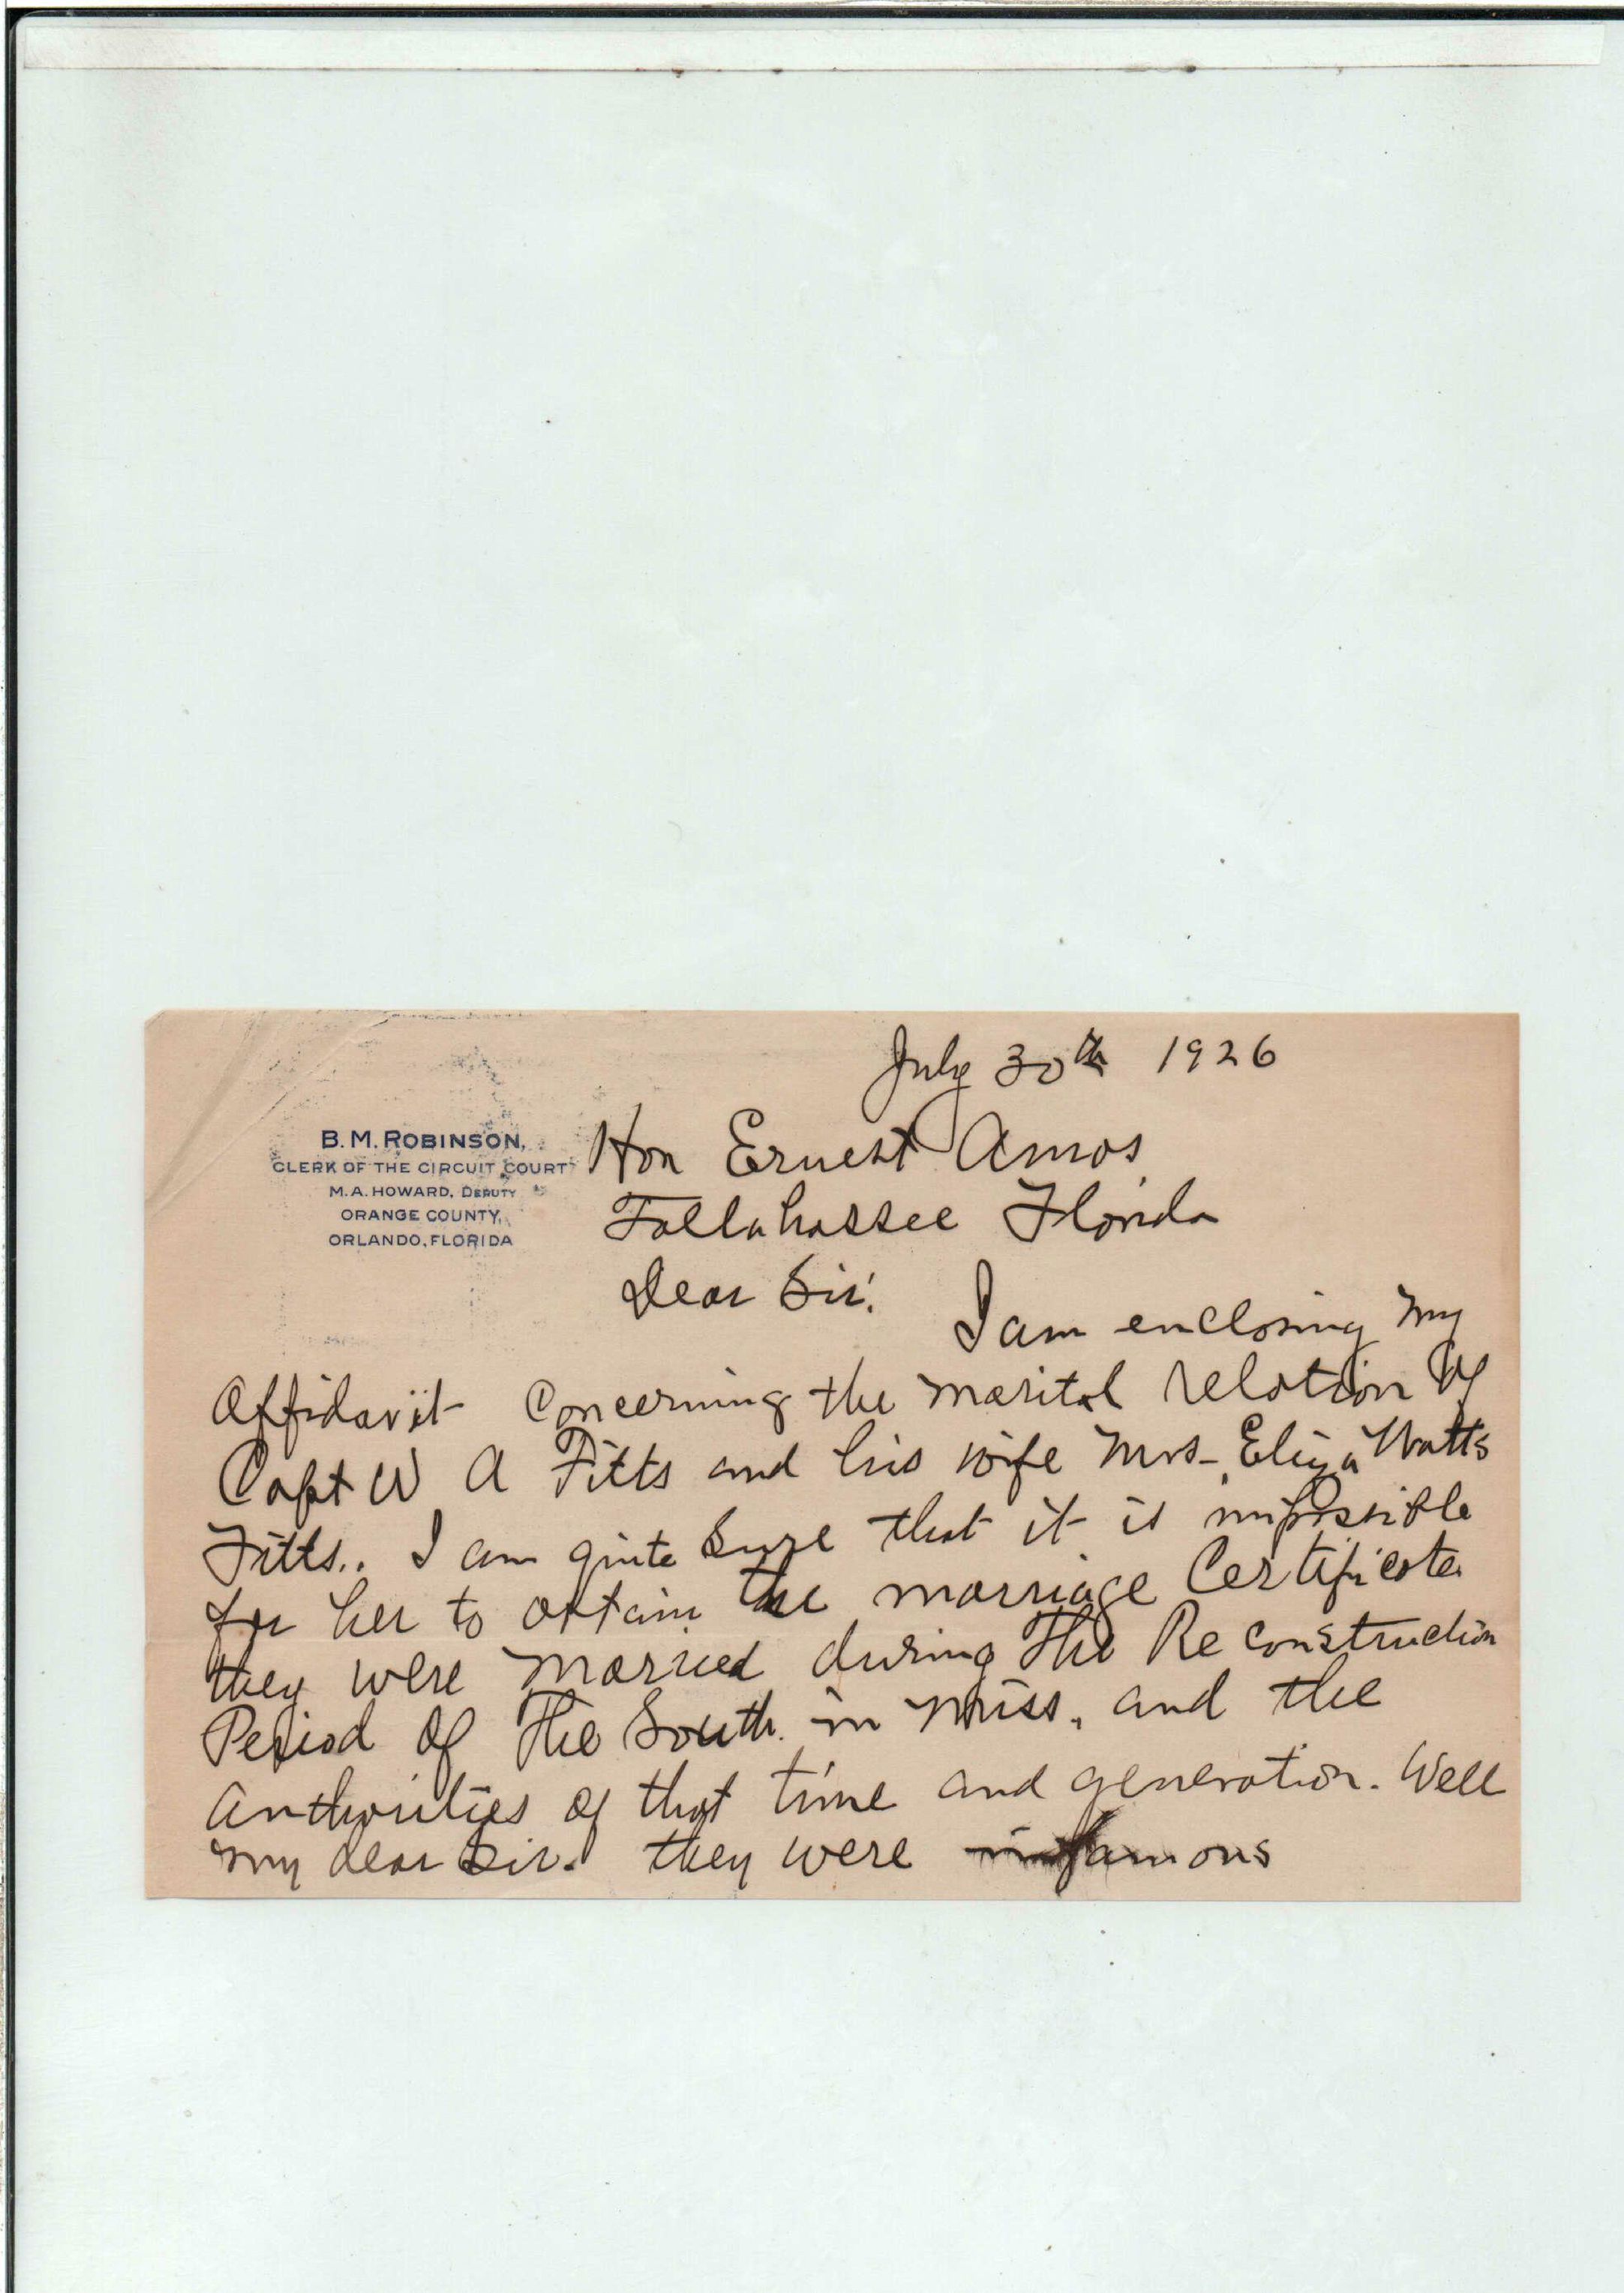 July 30th 1926
B. M. ROBINSON,
CLERK OF THE CIRCUIT COURT
M. A. HOWARD, DEPUTY
ORANGE COUNTY,
ORLANDO, FLORIDA
Hon Ernest Amos,
Tallahassee Florida
Dear Sir:
I am enclosing my
Affidavit Concerning the marital relation of
Capt W A Fitts and his wife Mrs- Eliza Watts
Fitts.. I am quite Sure that it is impossible
for her to obtain the marriage Certificate
they were Married during The Re construction
Period of The South. in Miss. and the
authorities of that time and generation. Well
my dear Sir. they were infamous